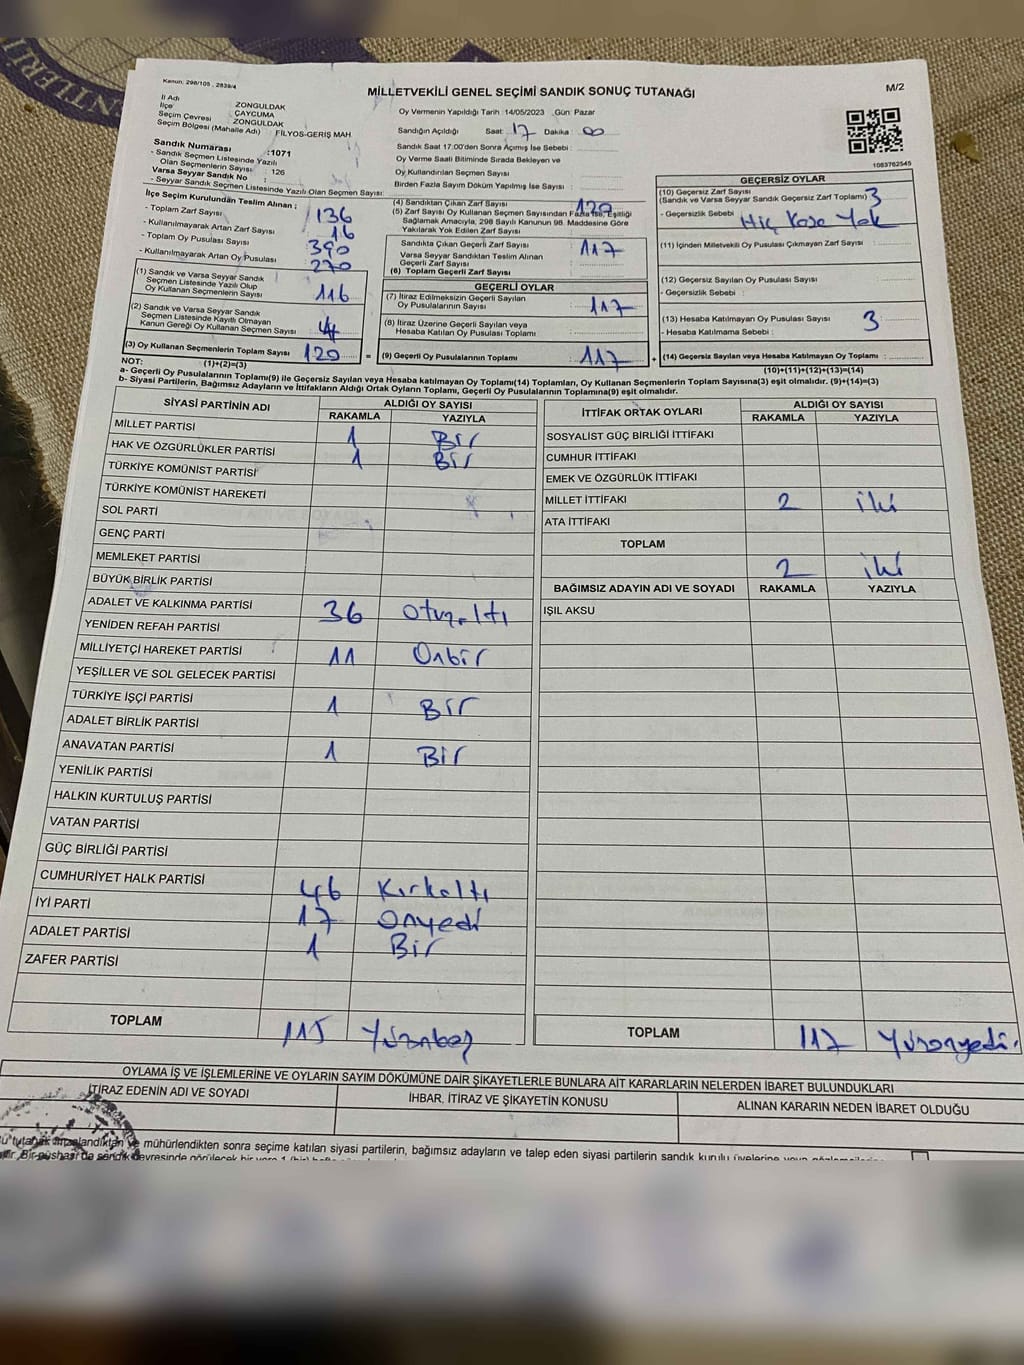 Kanun: 298/105 , 2839/4
MİLLETVEKİLİ GENEL SEÇİMİ SANDIK SONUÇ TUTANAĞI
M/2
İl Adı ZONGULDAK
İlçe ÇAYCUMA
Seçim Çevresi ZONGULDAK
Seçim Bölgesi (Mahalle Adı) : FİLYOS-GERİŞ MAH.
Sandık Numarası :1071
- Sandık Seçmen Listesinde Yazılı
Olan Seçmenlerin Sayısı : 126
Varsa Seyyar Sandık No :
- Seyyar Sandık Seçmen Listesinde Yazılı Olan Seçmen Sayısı:
Oy Vermenin Yapıldığı Tarih :14/05/2023 Gün: Pazar
Sandığın Açıldığı Saat: 17 Dakika : 00
Sandık Saat 17:00'den Sonra Açımış İse Sebebi :
Oy Verme Saati Bitiminde Sırada Bekleyen ve
Oy Kullandırılan Seçmen Sayısı :
Birden Fazla Sayım Döküm Yapılmış İse Sayısı :
1083762545
İlçe Seçim Kurulundan Teslim Alınan :
- Toplam Zarf Sayısı 136
- Kullanılmayarak Artan Zarf Sayısı 16
- Toplam Oy Pusulası Sayısı 390
- Kullanılmayarak Artan Oy Pusulası 270
(1) Sandık ve Varsa Seyyar Sandık
Seçmen Listesinde Yazılı Olup
Oy Kullanan Seçmenlerin Sayısı 116
(2) Sandık ve Varsa Seyyar Sandık
Seçmen Listesinde Kayıtlı Olmayan
Kanun Gereği Oy Kullanan Seçmen Sayısı 4
(3) Oy Kullanan Seçmenlerin Toplam Sayısı 120
(1)+(2)=(3)
(4) Sandıktan Çıkan Zarf Sayısı 120
(5) Zarf Sayısı Oy Kullanan Seçmen Sayısından Fazla İse, Eşitliği
Sağlamak Amacıyla, 298 Sayılı Kanunun 98. Maddesine Göre
Yakılarak Yok Edilen Zarf Sayısı :
Sandıkta Çıkan Geçerli Zarf Sayısı 117
Varsa Seyyar Sandıktan Teslim Alınan
Geçerli Zarf Sayısı
(6) Toplam Geçerli Zarf Sayısı :
GEÇERLİ OYLAR
(7) İtiraz Edilmeksizin Geçerli Sayılan
Oy Pusulalarının Sayısı : 117
(8) İtiraz Üzerine Geçerli Sayılan veya
Hesaba Katılan Oy Pusulası Toplamı :
= (9) Geçerli Oy Pusulalarının Toplamı : 117
GEÇERSİZ OYLAR
(10) Geçersiz Zarf Sayısı
(Sandık ve Varsa Seyyar Sandık Geçersiz Zarf Toplamı) 3
- Geçersizlik Sebebi : Hiç Kaşe Yok
(11) İçinden Milletvekili Oy Pusulası Çıkmayan Zarf Sayısı :
(12) Geçersiz Sayılan Oy Pusulası Sayısı :
- Geçersizlik Sebebi :
(13) Hesaba Katılmayan Oy Pusulası Sayısı : 3
- Hesaba Katılmama Sebebi :
+ (14) Geçersiz Sayılan veya Hesaba Katılmayan Oy Toplamı :
(10)+(11)+(12)+(13)=(14)
NOT:
a- Geçerli Oy Pusulalarının Toplamı(9) ile Geçersiz Sayılan veya Hesaba katılmayan Oy Toplamı(14) Toplamları, Oy Kullanan Seçmenlerin Toplam Sayısına(3) eşit olmalıdır. (9)+(14)=(3)
b- Siyasi Partilerin, Bağımsız Adayların ve İttifakların Aldığı Ortak Oyların Toplamı, Geçerli Oy Pusulalarının Toplamına(9) eşit olmalıdır.
SİYASİ PARTİNİN ADI ALDIĞI OY SAYISI
RAKAMLA YAZIYLA
MİLLET PARTİSİ 1 Bir
HAK VE ÖZGÜRLÜKLER PARTİSİ 1 Bir
TÜRKİYE KOMÜNİST PARTİSİ
TÜRKİYE KOMÜNİST HAREKETİ
SOL PARTİ
GENÇ PARTİ
MEMLEKET PARTİSİ
BÜYÜK BİRLİK PARTİSİ
ADALET VE KALKINMA PARTİSİ 36 Otuzaltı
YENİDEN REFAH PARTİSİ
MİLLİYETÇİ HAREKET PARTİSİ 11 Onbir
YEŞİLLER VE SOL GELECEK PARTİSİ
TÜRKİYE İŞÇİ PARTİSİ 1 Bir
ADALET BİRLİK PARTİSİ
ANAVATAN PARTİSİ 1 Bir
YENİLİK PARTİSİ
HALKIN KURTULUŞ PARTİSİ
VATAN PARTİSİ
GÜÇ BİRLİĞİ PARTİSİ
CUMHURİYET HALK PARTİSİ 46 Kırkaltı
İYİ PARTİ 17 Onyedi
ADALET PARTİSİ 1 Bir
ZAFER PARTİSİ
TOPLAM 115 Yüzonbeş
İTTİFAK ORTAK OYLARI ALDIĞI OY SAYISI
RAKAMLA YAZIYLA
SOSYALİST GÜÇ BİRLİĞİ İTTİFAKI
CUMHUR İTTİFAKI
EMEK VE ÖZGÜRLÜK İTTİFAKI
MİLLET İTTİFAKI 2 iki
ATA İTTİFAKI
TOPLAM 2 iki
BAĞIMSIZ ADAYIN ADI VE SOYADI RAKAMLA YAZIYLA
IŞIL AKSU
TOPLAM 117 Yüzonyedi.
OYLAMA İŞ VE İŞLEMLERİNE VE OYLARIN SAYIM DÖKÜMÜNE DAİR ŞİKAYETLERLE BUNLARA AİT KARARLARIN NELERDEN İBARET BULUNDUKLARI
İTİRAZ EDENİN ADI VE SOYADI İHBAR, İTİRAZ VE ŞİKAYETİN KONUSU ALINAN KARARIN NEDEN İBARET OLDUĞU
mühürlendikten sonra seçime katılan siyasi partilerin, bağımsız adayların ve talep eden siyasi partilerin sandık kurulu üyelerine